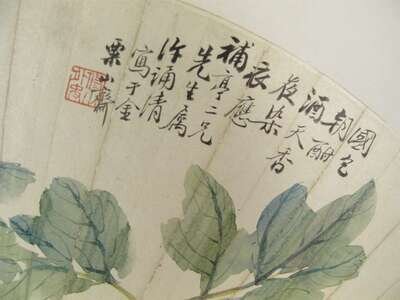 國色
朝酣
酒天香
夜染
衣應
補亭二兄
先生屬
許誦清
寫于金
粟山齋